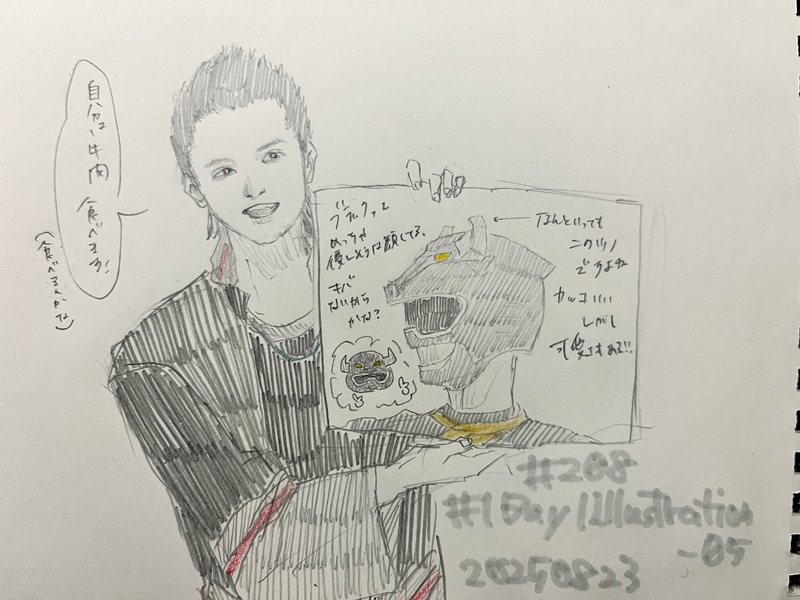 自分は牛肉食べます!
(食べるんかな)
ブラックって
めっちゃ
優しそうな顔してる。
キバ
ないから
かな?
なんといっても
このツノ
ですよね
カッコいい
しかし
可愛さもある!!
#208
#1Day1illustration
-05
20250823